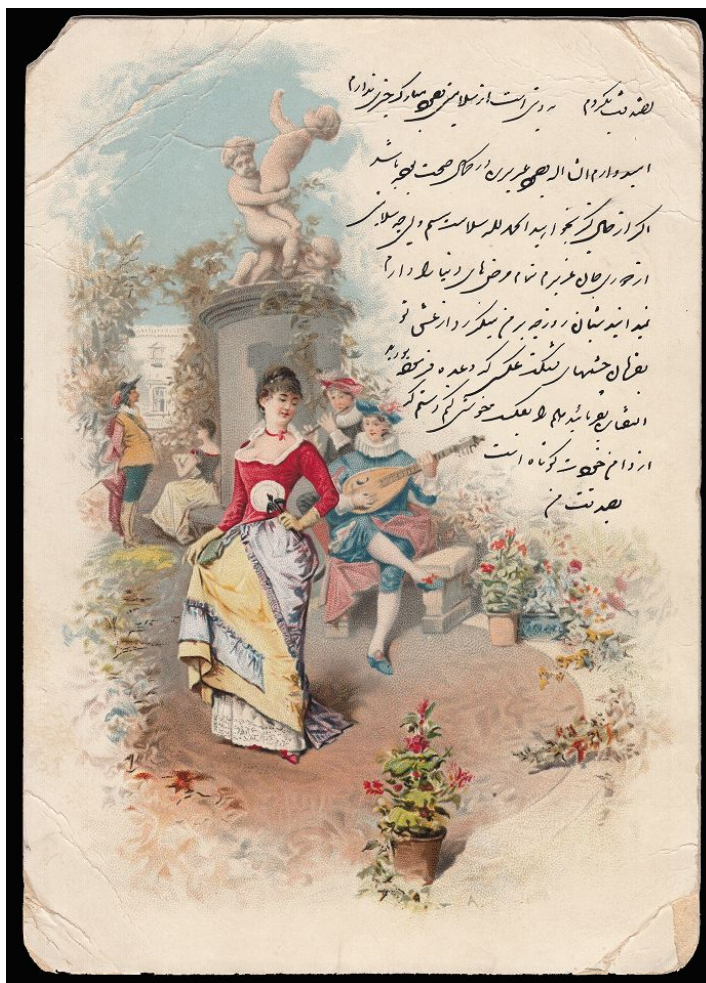 تصدقت بگردم مدتی است از سلامتی وجود مبارک خبری ندارم
امیدوارم ان اله وجود عزیزت در کمال صحت بوده باشد
اگر از حال کمینه بخواهید الحمد لله سلامت هستم ولی چه سلامتی
از دوری جان عزیزم تمام مرض های دنیا را دارم
نمیدانید شبان روز چه بر من میگذرد از عشق تو
قربان چشمهای قشنگت عکسی که وعده
التفات بفرمائید دلم را بعکست خوش کنم دستم که
از دامن خودت کوتاه است
تصدقت من